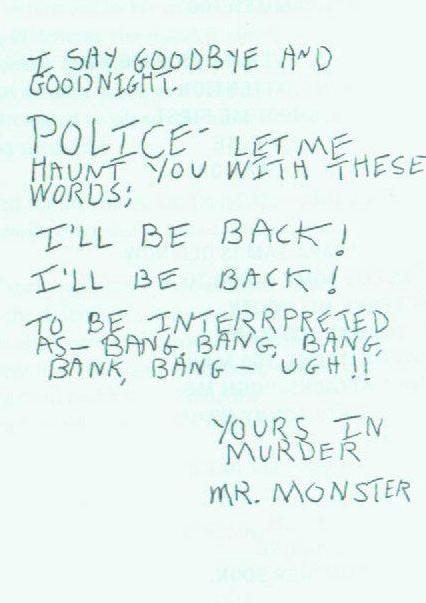 I SAY GOODBYE AND
GOODNIGHT.
POLICE- LET ME
HAUNT YOU WITH THESE
WORDS;
I'LL BE BACK!
I'LL BE BACK!
TO BE INTERRPRETED
AS- BANG, BANG, BANG,
BANK, BANG - UGH!!
YOURS IN
MURDER
MR. MONSTER